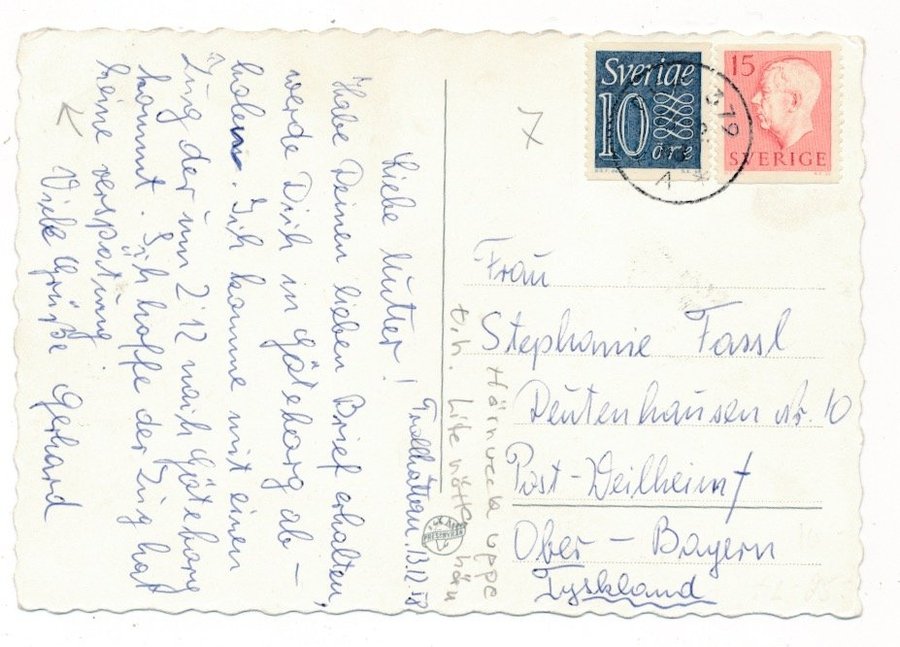 Trollhättan. 13.12.58
Liebe Mutter!
Habe Deinen lieben Brief erhalten,
werde Dich in Göteborg ab-
holen. Ich komme mit einen
Zug der um 2'12 nach Göteborg
kommt. Ich hoffe der Zug hat
keine verspätung
Viele Grüße Gerhard
Sverige
10
öre
15
SVERIGE
319
Frau
Stephanie Fassl
Deutenhausen Nr. 10
Post-Weilheim
Ober-Bayern
Tyskland
Hörnveck uppe
t.h. Lite nött
hörn